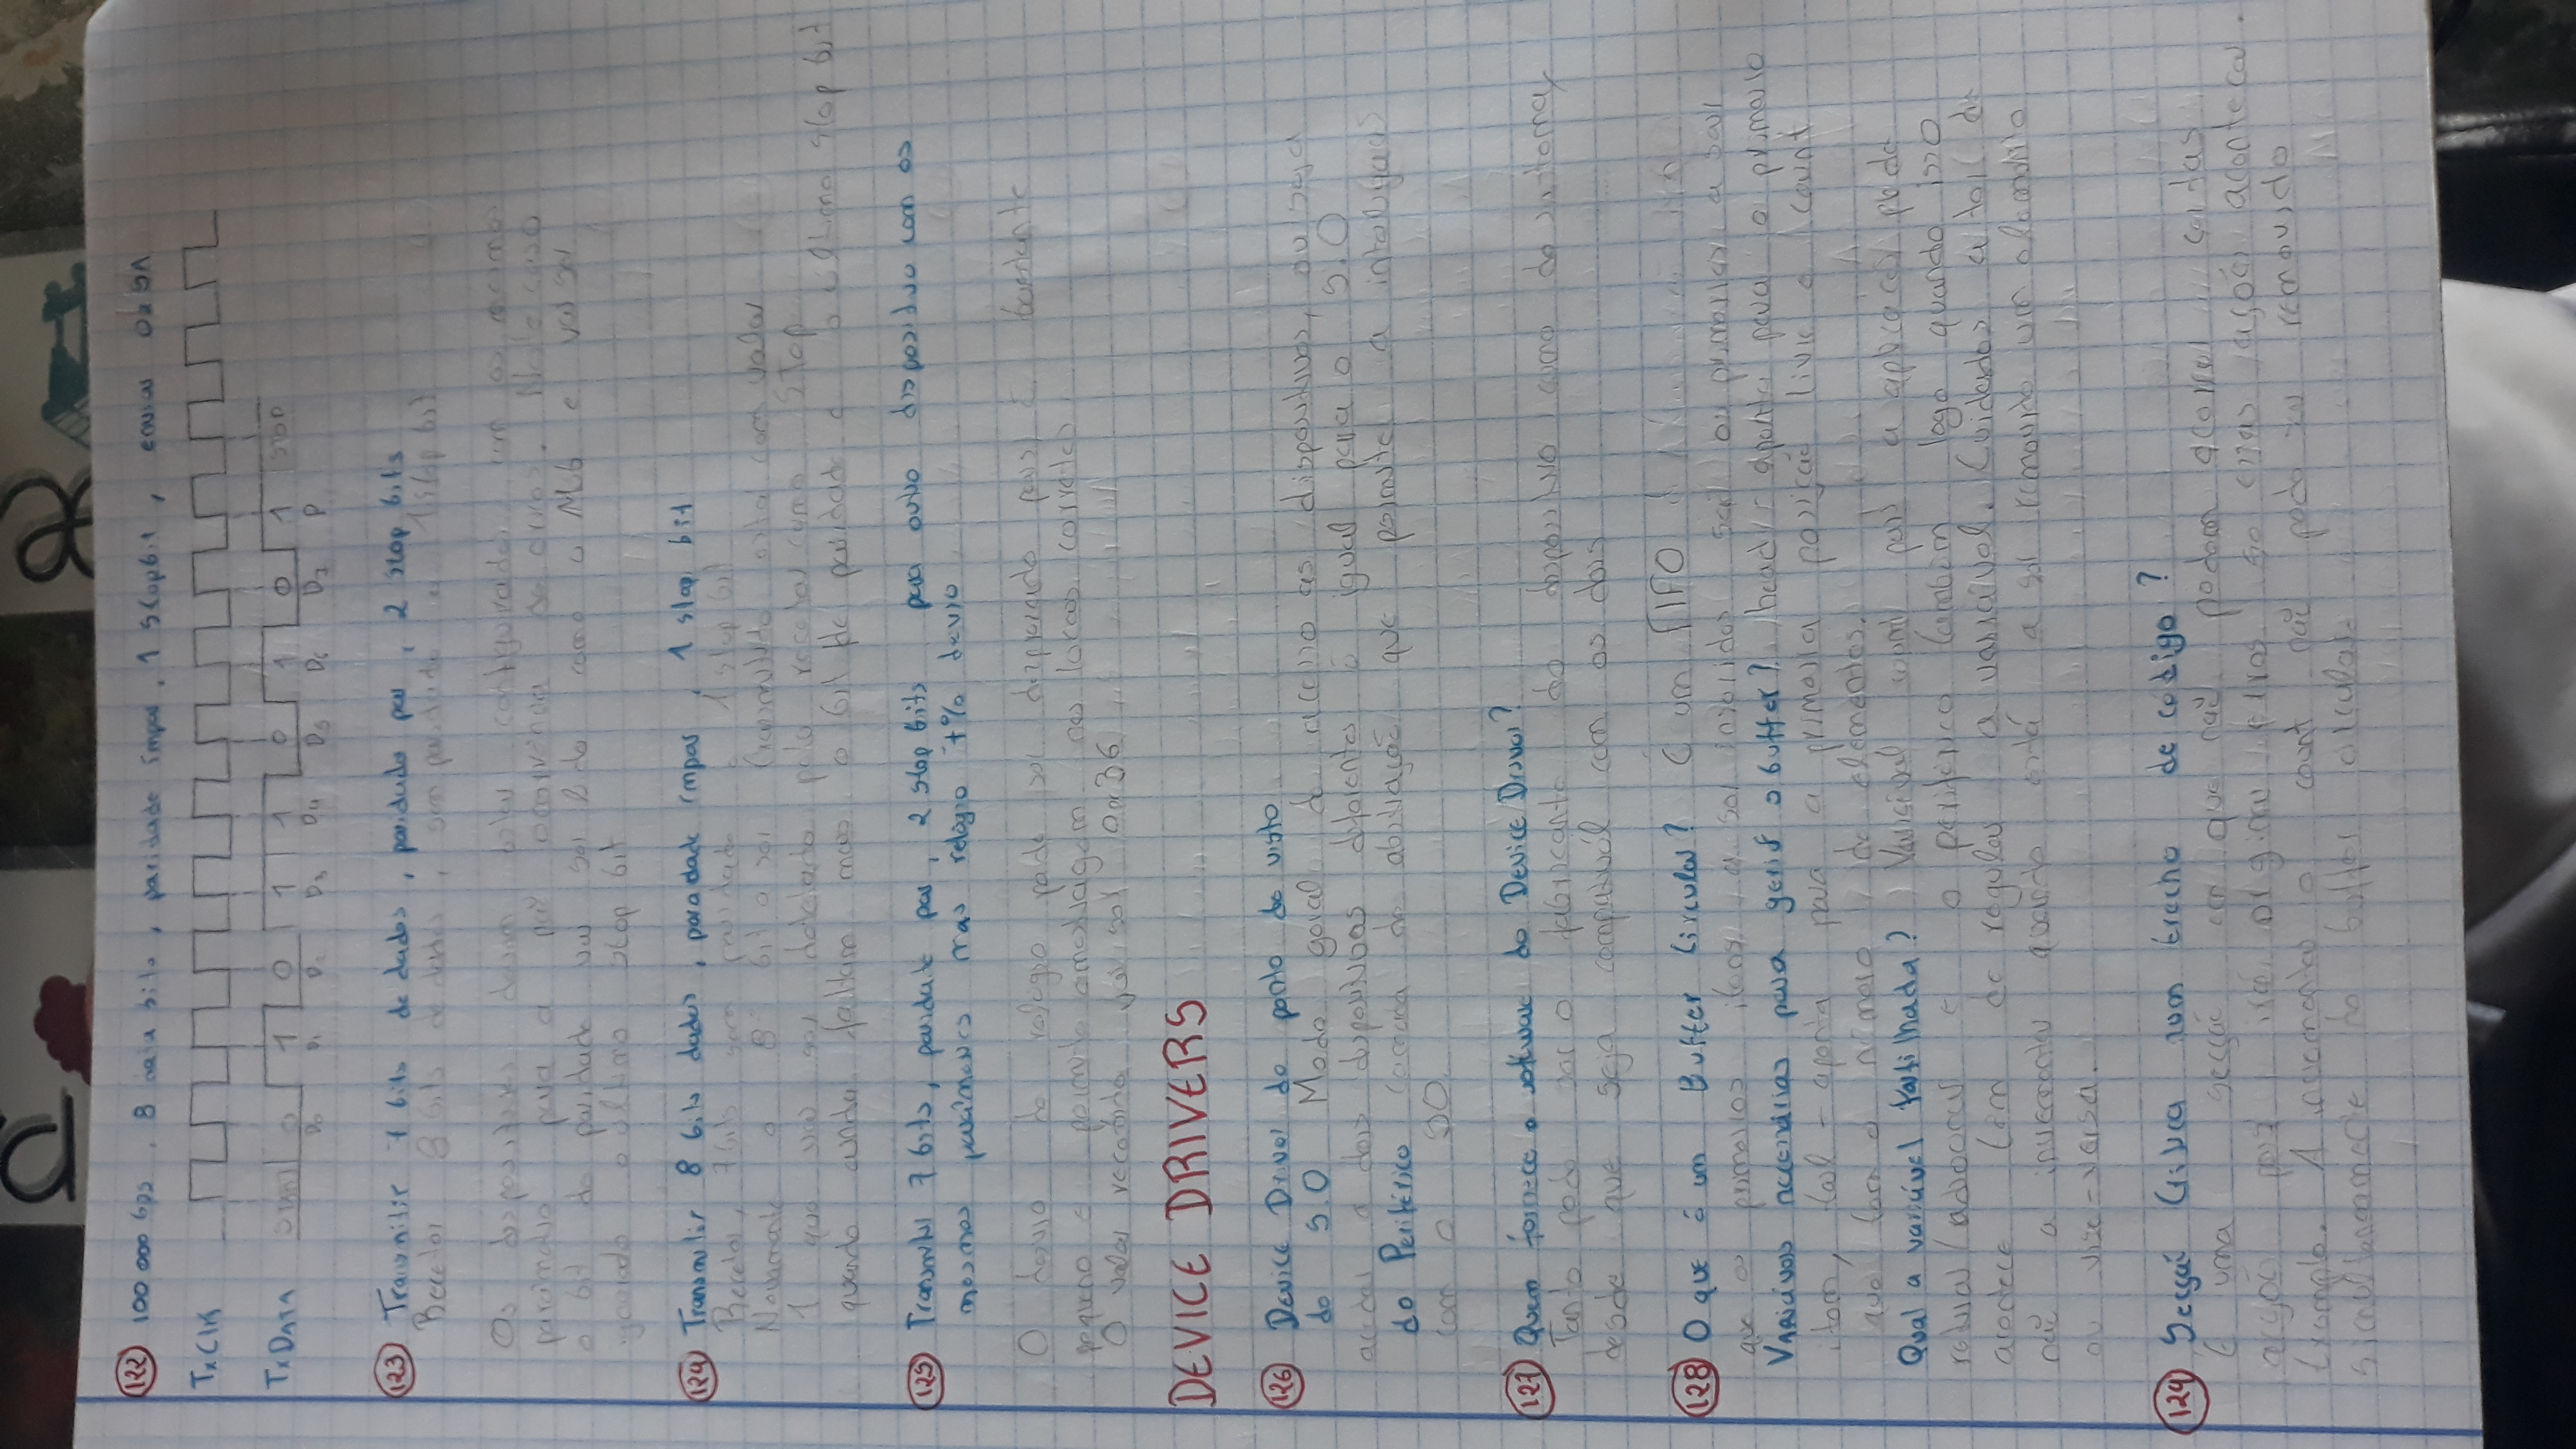 122 100 000 bps, 8 data bits, paridade ímpar, 1 stop bit, enviar 0x5A
TxClk
TxDATA START 0 1 0 1 1 0 1 0 1 STOP
D0 D1 D2 D3 D4 D5 D6 D7 P
123 Transmitir 7 bits de dados, paridade par, 2 stop bits
Recetor 8 bits de dados, sem paridade e 1 stop bit
Os dispositivos devem estar configurados com os mesmos
parâmetro para a não ocorrência de erros. Neste caso
o bit de paridade vai ser lido como o MSb e vai ser
ignorado o último stop bit
124 Transmitir 8 bits dados, paradade ímpar, 1 stop bit
Recetor, 7 bits sem paridade e 1 stop bit
Novamente o 8º bit a ser transmitido está com valor
1 que vai ser detetado pelo recetor como stop
quando ainda faltam mais o bit de paridade e o último stop bit
125 Transmitir 7 bits, paridade par, 2 stop bits para outro dispositivo com os
mesmos parâmetros mas relógio 1% desvio
O desvio do relógio pode ser desprezado pois é bastante
pequeno e permite amostragem nos locais corretos
O valor recebido vai ser 0x36
DEVICE DRIVERS
126 Device Driver do ponto de visto
do S.O Modo geral de acesso aos dispositivos, ou seja
aceder a dois dispositivos diferentes é igual para o S.O
do Periférico camada de abstração que permite a interligação
com o SO
127 Quem fornece o software do Device Driver?
Tanto pode ser o fabricante do dispositivo como do sistema,
desde que seja compatível com os dois
128 O que é um Buffer Circular? É um FIFO
que os primeiros itens a ser inseridos são os primeiros a sair
Variáveis necessárias para gerir o buffer? head - aponta para o primeiro
item, tail - aponta para a primeira posição livre e count
que tem o número de elementos.
Qual a variável partilhada? Variável count pois a aplicação pode
retirar/adicionar e o periférico também logo quando isso
acontece têm de regular a variável. Cuidados a ter de
não a incrementar quando está a ser removido um elemento
ou vice-versa.
129 Secção Crítica num trecho de código?
É uma secção em que não podem ocorrer certas
ações pois irá originar erros se essas ações acontecer.
Exemplo. A incrementar o count não pode ser removido
simultaneamente do buffer circular